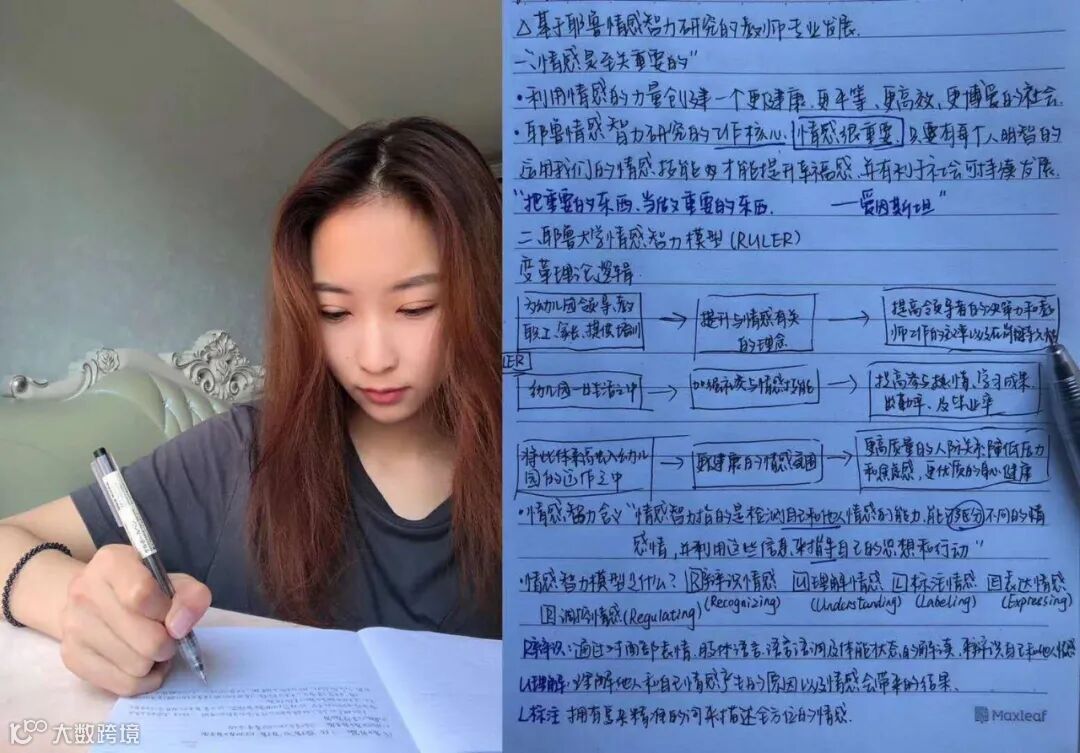 △基于耶鲁情感智力研究的教师专业发展.
一、"情感是至关重要的"
·利用情感的力量创建一个更健康、更平等、更高效、更博爱的社会.
·耶鲁情感智力研究的工作核心,情感很重要,只要有每个人明智的
运用我们的情感,技能才能提升幸福感,并有利于社会可持续发展.
"把重要的东西,当做重要的东西. ——爱因斯坦"
二、耶鲁大学情感智力模型(RULER)
变革理论逻辑
为幼儿园领导、教
职工、家长、提供培训
提升与情感有关
的理念
提高领导者的决策力和教
师工作的效率以及
LER
幼儿园一日生活之中
加强社交与情感技能
提高参与热情,学习成果
出勤率、及毕业率
将此体系融入幼儿
园的运作之中
更健康的情感氛围
更高质量的人际关系,降低压力
和焦虑感,更优质的身心健康
·情感智力含义"情感智力指的是检测自己和他人情感的能力,能够区分不同的情
感情,并利用这些信息来指导自己的思想和行动"
·情感智力模型是什么? R辨识情感 U理解情感 L标注情感 E表达情感
(Recognizing) (Understanding) (Labeling) (Expressing)
R调控情感(Regulating)
R辨识:通过对面部表情、肢体语言、语言语调及体能状态的解读,来辨识自己和他人情感
U理解:理解他人和自己情感产生的原因以及情感会带来的结果.
L标注 拥有更精准的词来描述全方位的情感.
Maxleaf
大数跨境